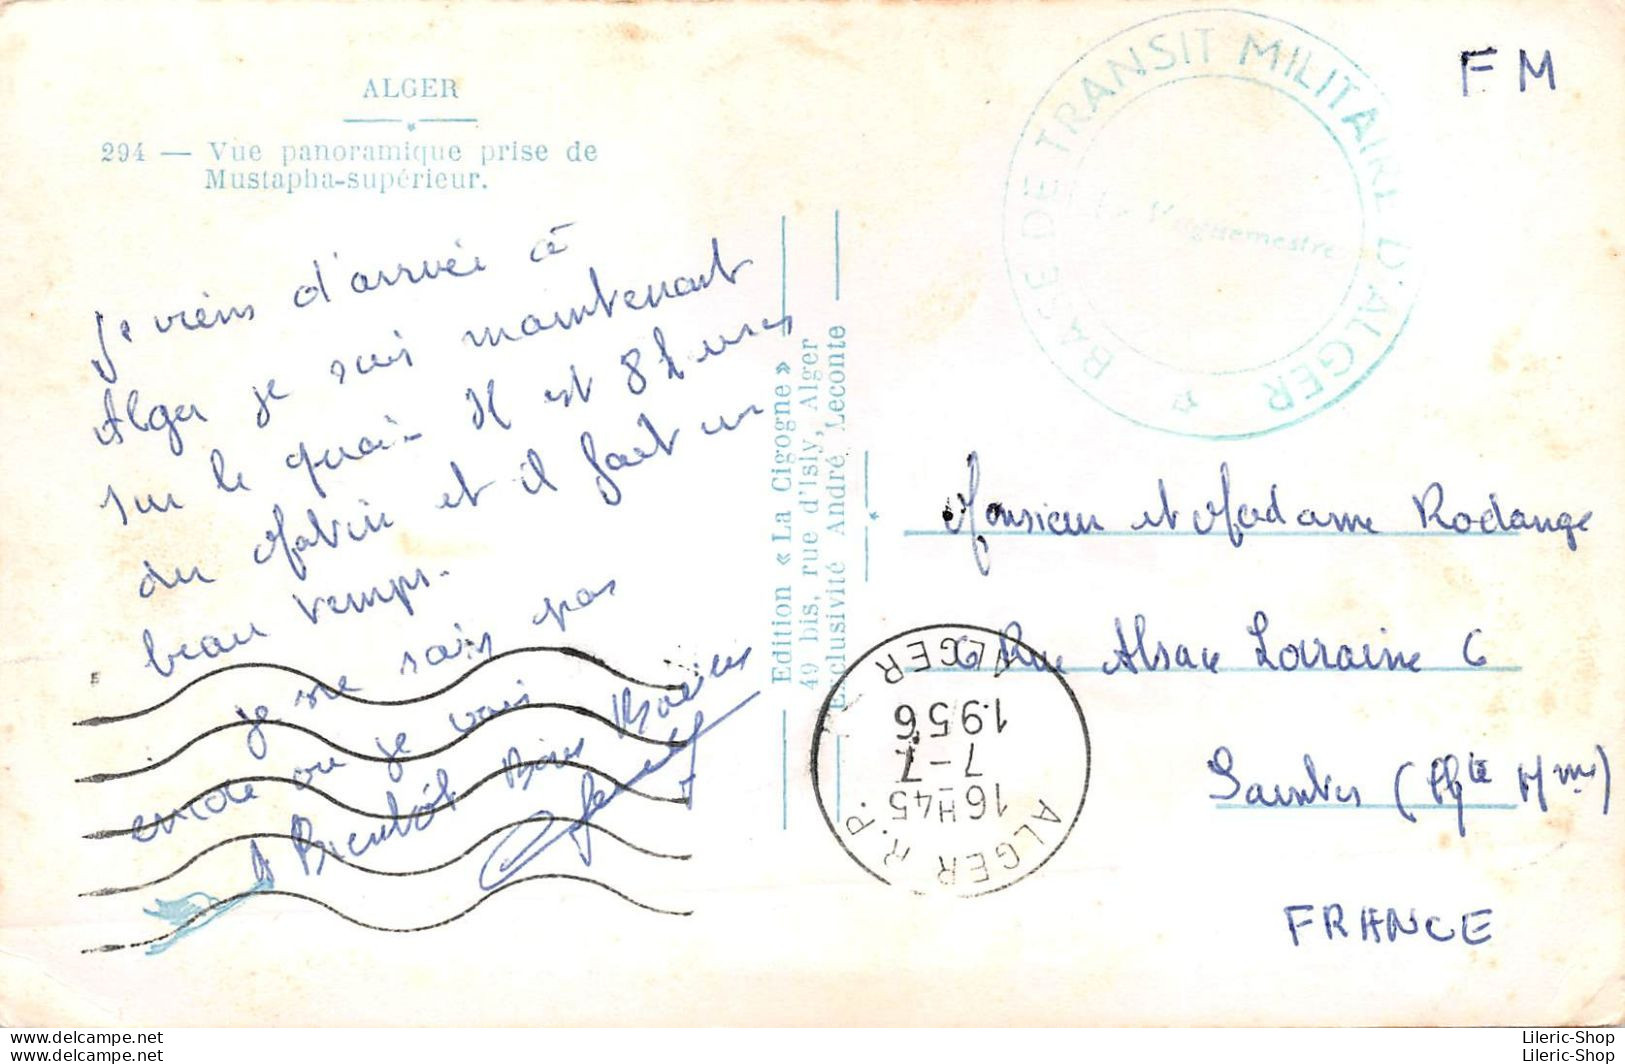 ALGER
294 — Vue panoramique prise de
Mustapha-supérieur.
Je viens d'arrivée à
Alger je suis maintenant
sur le quai - Il est 8 heures
du Matin et il fait un
beau temps.
je ne sais pas
encore ou je vais
A Bientôt Bons Baisers
Edition « La Cigogne »
49 bis, rue d'Isly, Alger
Exclusivité André Leconte
BASE DE TRANSIT MILITAIRE D'ALGER
Le Vaguemestre
FM
Monsieur et Madame Rodange
6 Rue Alsace Lorraine 6
Saintes (Chte Mme)
FRANCE
ALGER R.P. ALGER
16H45
7-7
1956
Lileric-Shop
Lileric-Shop